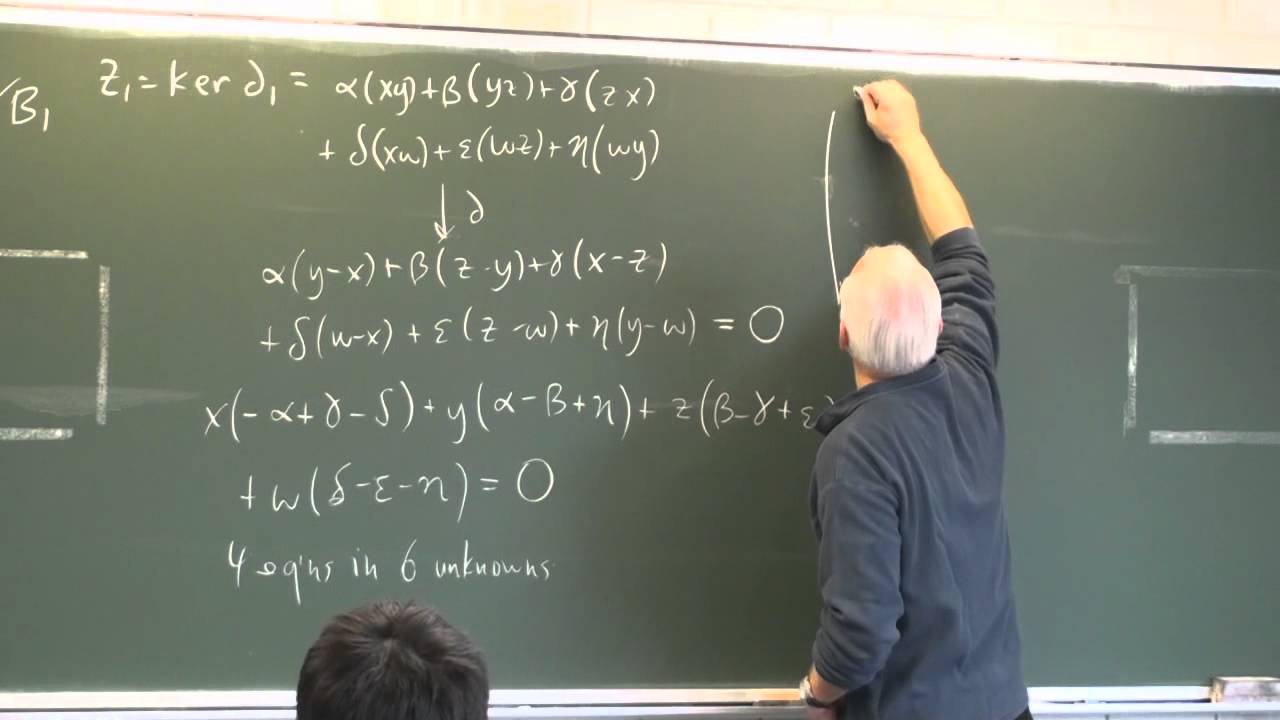 /B₁
Z₁ = ker ∂₁ = α(xy) + β(yz) + γ(zx)
+ δ(xw) + ε(wz) + η(wy)
↓ ∂
α(y-x) + β(z-y) + γ(x-z)
+ δ(w-x) + ε(z-w) + η(y-w) = 0
x(-α+γ-δ) + y(α-β+η) + z(β-γ+ε)
+ w(δ-ε-η) = 0
4 eq'ns in 6 unknowns